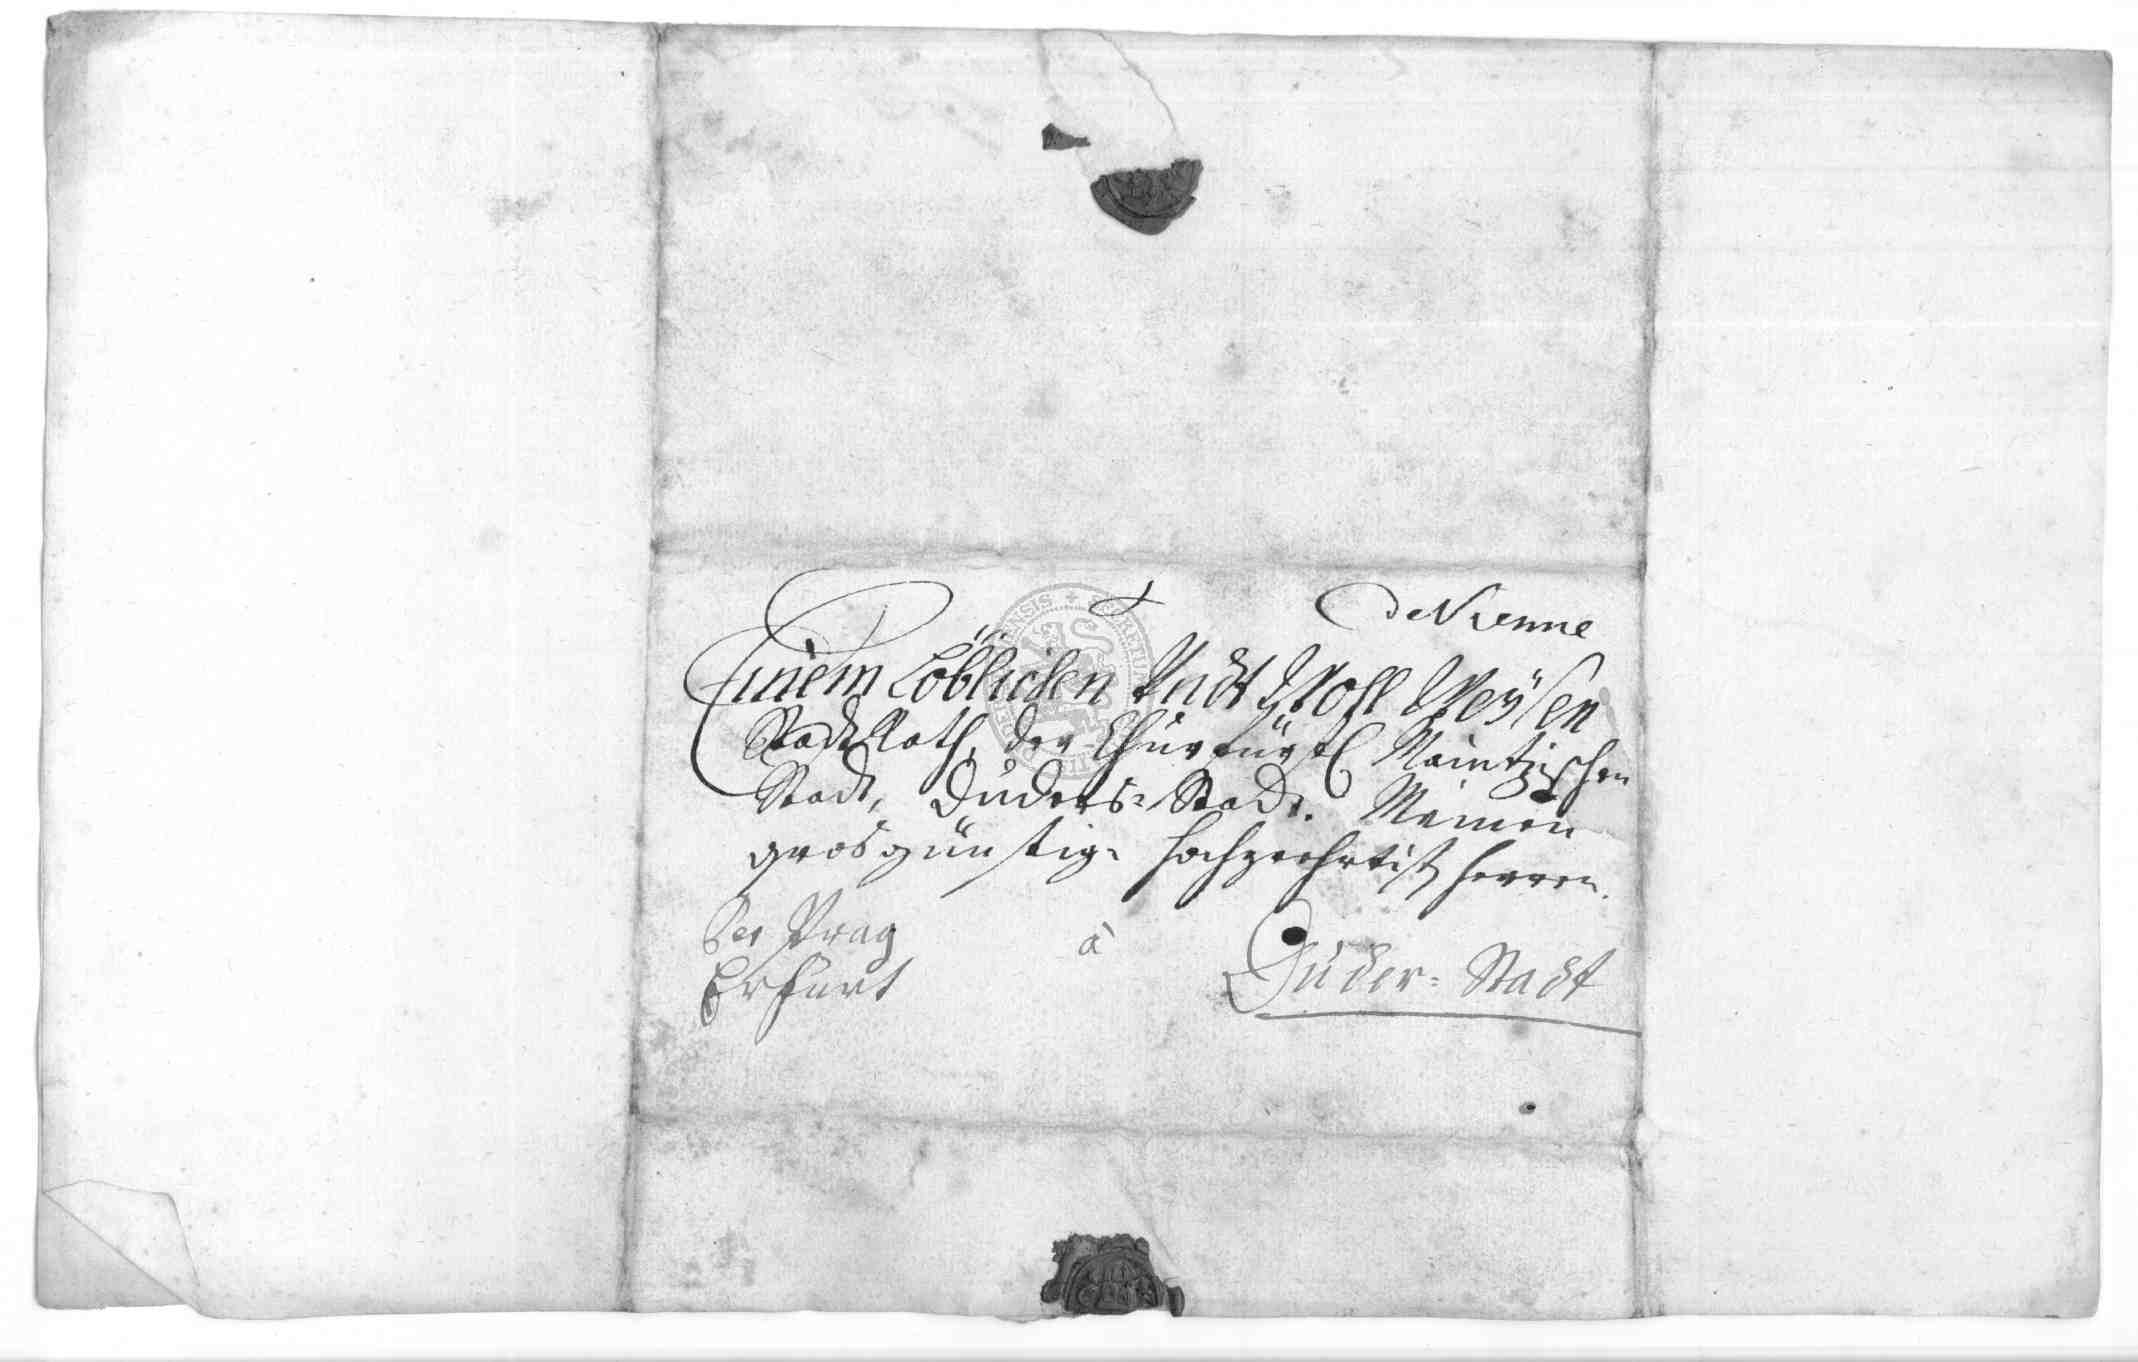 De Vienne
Einem Löblichen Vndt Wohl Weÿsen
Stadt Rath, der Churfürstl Maintzischen
Stadt, Duders-Stadt. Meinen
grosgünstig- hochgeehrtist herren.
Per Prag
Erfurt
à
Duder-Stadt